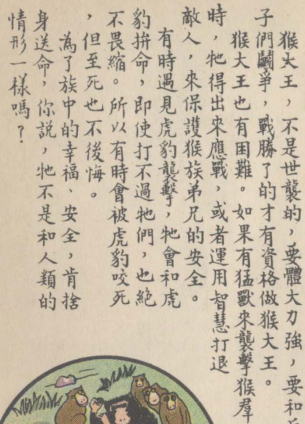 猴大王，不是世襲的，要體大力強，要和
子們鬭爭，戰勝了的才有資格做猴大王。
猴大王也有困難。如果有猛獸來襲擊猴羣
時，牠得出來應戰，或者運用智慧打退
敵人，來保護猴族弟兄的安全。
有時遇見虎豹襲擊，牠會和虎
豹拚命，即使打不過牠們，也絕
不畏縮。所以有時會被虎豹咬死
，但至死也不後悔。
為了族中的幸福、安全，肯捨
身送命，你說，牠不是和人類的
情形一樣嗎？